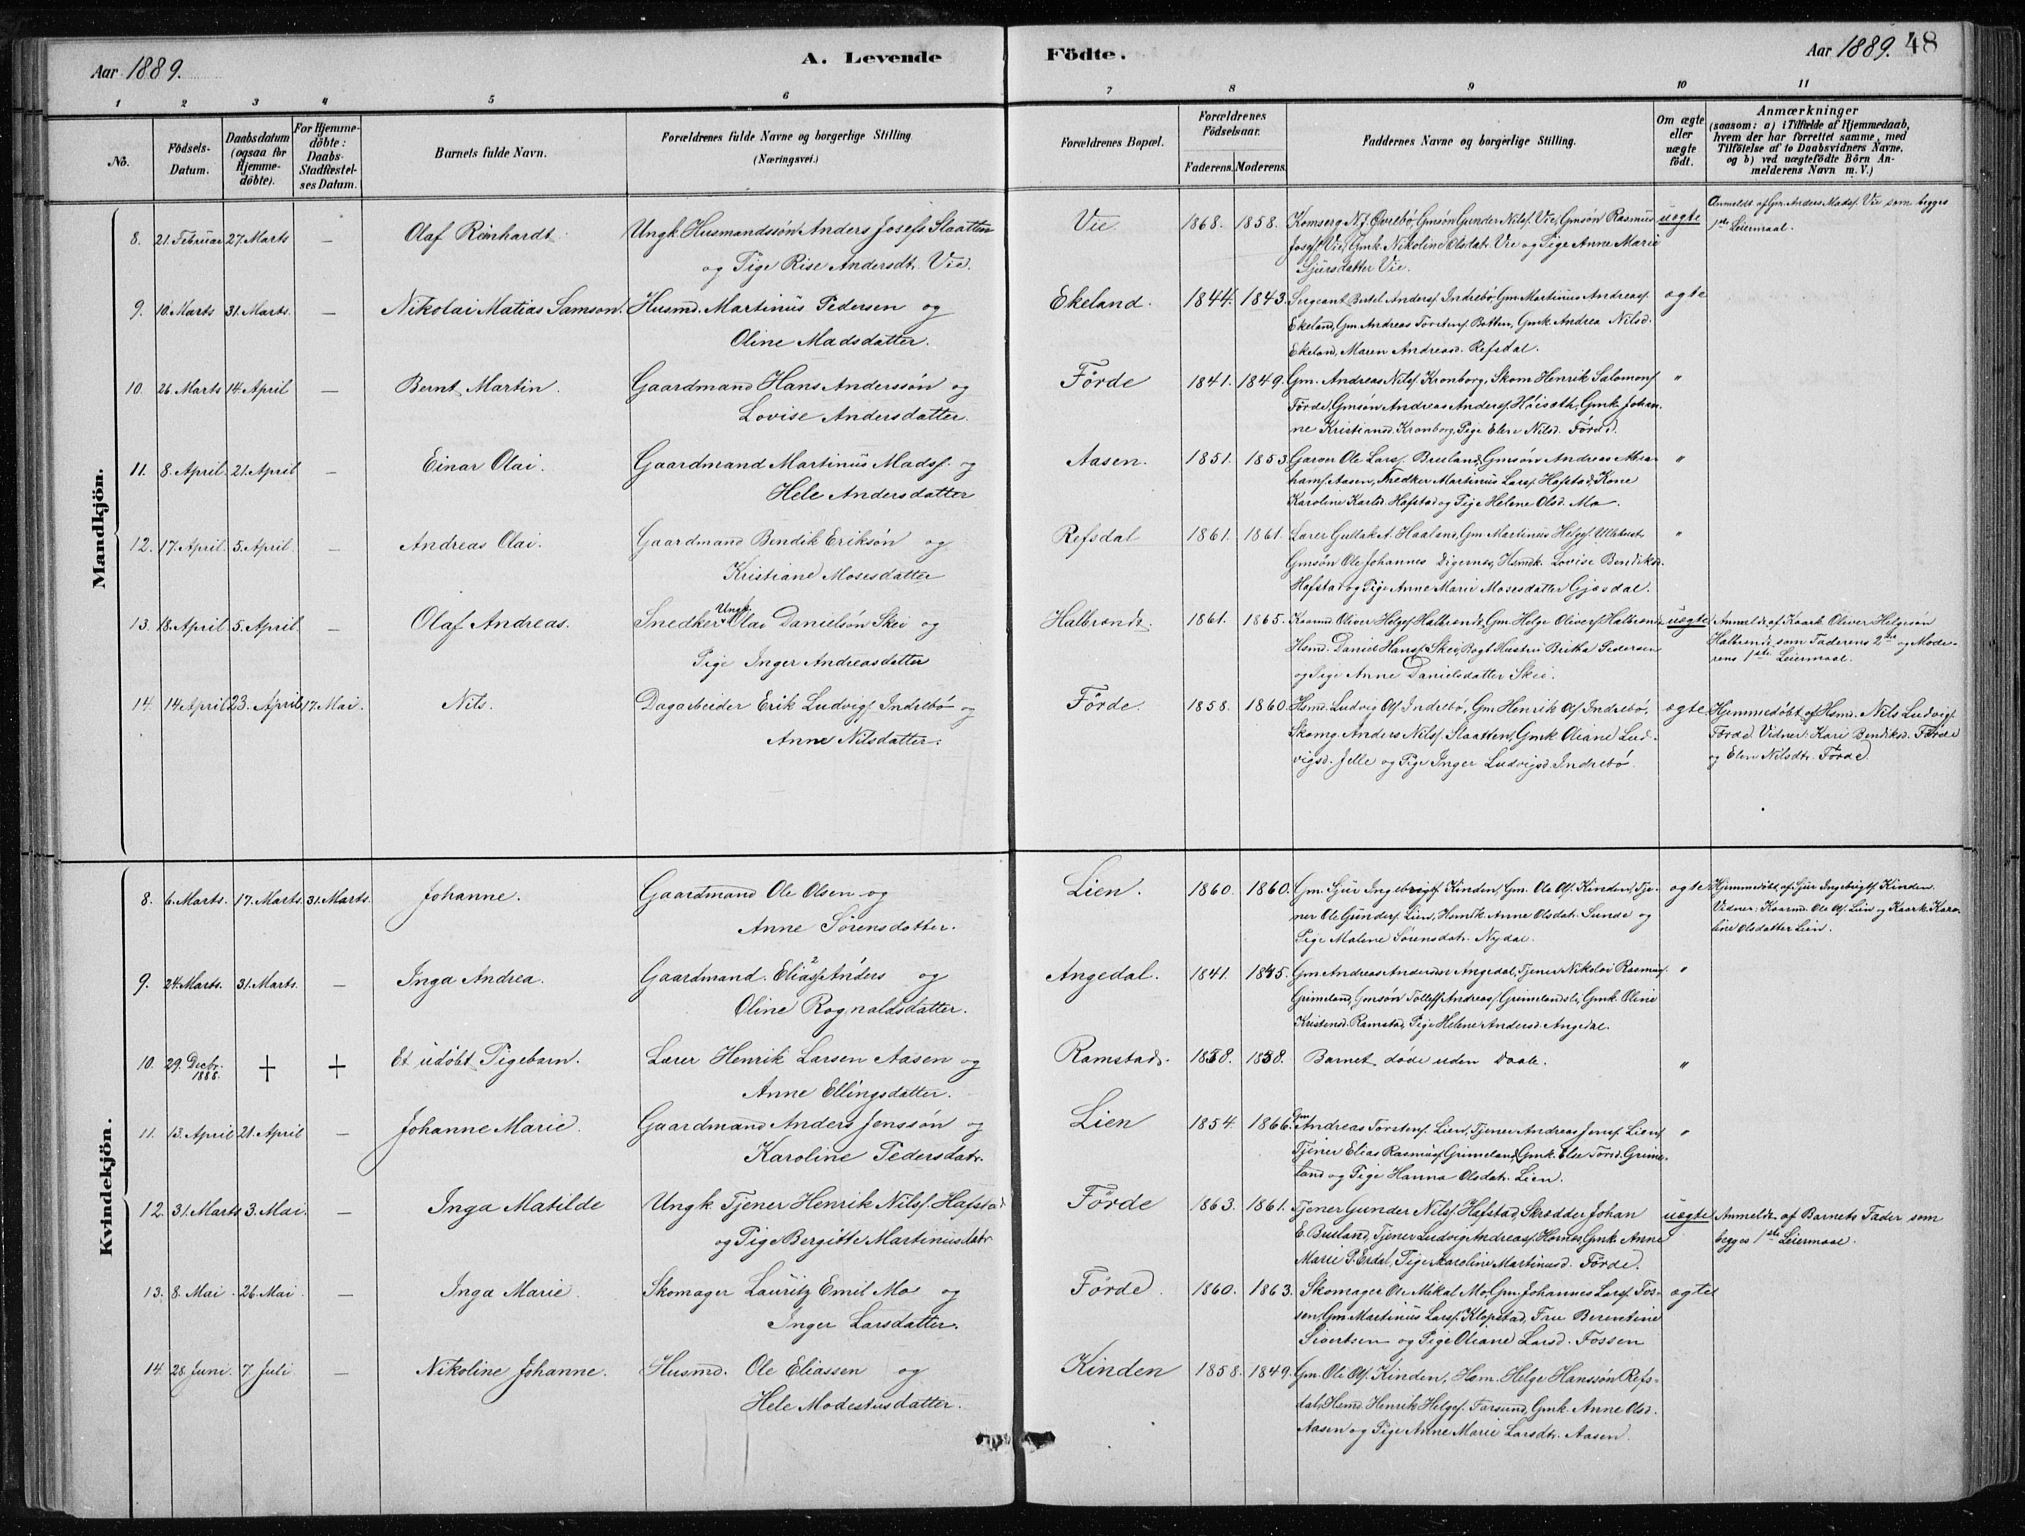 Aar 1889.
A. Levende
Födte.
Aar 1889.
48
1 2 3 4 5 6 7 8 9 10 11
No.
Födsels-Datum.
Daabsdatum (ogsaa for Hjemme-döbte).
For Hjemme-döbte: Daabs-Stadfæstel-ses Datum.
Barnets fulde Navn.
Forældrenes fulde Navne og borgerlige Stilling.
(Næringsvei.)
Forældrenes Bopæl.
Forældrenes Födselsaar.
Faderens. Moderens.
Faddernes Navne og borgerlige Stilling.
Om ægte eller uægte födt.
Anmærkninger
(saasom: a) i Tilfælde af Hjemmedaab, hvem der har forrettet samme, med Tilföielse af to Daabsvidners Navne, og b) ved uægtefödte Börn An-melderens Navn m. V.)
Mandkjön.
8. 21. Februar 27 Marts — Olaf Reinhardt. Ungk. Husmandssön Anders Josefs. Slaatten Vie 1868. 1858. Komserg. N. J. Övrebö, Gmsön Gunder Nilsf. Vie, Gmsön Rasmus uægte Anmeldt af Gm. Anders Madsf. Vie som begges
og Pige Rise Andersdtr. Vie. Josefs. Vie, Gmk. Nikoline Olsdatr. Vie og Pige Anne Marie 1ste Leiermaal.
Sjursdatter Vie.
9. 10. Marts 31. Marts. — Nikolai Matias Samson. Husmd. Martinus Pedersen og Ekeland. 1844. 1843. Sergeant Bertel Andersf. Indrebö, Gm. Martinus Andreasf. ægte
Oline Madsdatter. Ekeland, Gm. Andreas Torstenf. Botten, Gmk. Andrea Nilsd.
Ekeland, Maren Andreasd. Refsdal.
10. 26. Marts 14. April — Bernt Martin. Gaardmand Hans Anderssön og Förde 1841. 1849. Gm. Andreas Nilsf. Kronborg, Skom. Henrik Salomonsf. "
Lovise Andersdatter. Förde, Gmsön Andreas Andersf. Höisæth, Gmk. Johan-
ne Kristiansd. Kronborg, Pige Elen Nilsd. Förde.
11. 8. April 21. April — Einar Olai. Gaardmand Martinus Madsf. og Aasen. 1851. 1853. Garver Ole Larsf. Bruland, Gmsön Andreas Abra- "
Hele Andersdatter hamf. Aasen, Snedker Martinus Larsf. Hafstad, Kone
Karoline Karlsd. Hafstad og Pige Helene Olsd. Mo.
12. 17. April. 5. April. — Andreas Olai. Gaardmand Bendik Eriksön og Refsdal 1861. 1861. Lærer Gullak A. Haaland, Gm. Martinus Helgef. "
Kristiane Mosesdatter Gmsön Ole Johannes Digernes, Hsmdk. Lovise Bendiksd.
Hafstad og Pige Anne Marie Mosesdatter Gjesdal.
13. 18. April 5. April. — Olaf Andreas. Snedker Ungk. Olai Danielsön Skei og Halbrende. 1861. 1865. Kaarmd. Oliver Helgef. Halbrende, Gm. Helge Oliverf. Halbrende uægte Anmeldt af Kaark. Oliver Helgesön
Pige Inger Andreasdatter Hsmd. Daniel Hansf. Skei, Britha Pedersen Halbrende som Faderens 2det og Mode-
og Pige Anne Danielsdatter Skei. rens 1ste Leiermaal.
14. 14 April 23. April 17. Mai. Nils. Dagarbeider Erik Ludvigf. Indrebö og Förde. 1858. 1860. Hsmd. Ludvig Olsf. Indrebö, Gm. Henrik Olsf. Indrebö, ægte Hjemmedöbt af Hsmd. Nils Ludvigf.
Anne Nilsdatter. Skomg. Anders Nilsf. Slaatten, Gmk. Oliane Lud- Förde. Vidner: Kari Bendiksd. Förde
vigsd. Jelle og Pige Inger Ludvigsd. Indrebö. og Elen Nilsdtr. Förde.
Kvindekjön.
8. 6. Marts. 17. Marts. 31. Marts. Johanne. Gaardmand Ole Olsen og Lien. 1860. 1860. Gm. Sjur Ingebrigtf. Kinden, Gm. Ole Olsf. Kinden, Tje- ægte Hjemmedöbt af Sjur Ingebrigtf. Kinden.
Anne Sörensdatter. ner Ole Gundersf. Lien, Hsmdk. Anne Olsdatr. Sunde og Vidner: Kaarmd. Ole Olsf. Lien og Kaark. Karo-
Pige Malene Sörensdatr. Nydal. line Olsdatter Lien.
9. 24. Marts. 31. Marts. — Inga Andrea. Gaardmand. Elias Anders og Angedal. 1841. 1845. Gm. Andreas Andersen Angedal, Tjener Nikolai Rasmusf. "
Oline Rognaldsdatter. Grimeland, Gmsön Tollef Andreasf. Grimelandsli, Gmk. Oline
Kristensd. Ramstad, Pige Helene Andersd. Angedal.
10. 29. Decbr. 1888. + + Et udöbt Pigebarn. Lærer Henrik Larsen Aasen og Ramstad. 1858. 1858. Barnet döde uden Daab. "
Anne Ellingsdatter.
11. 13. April 21. April — Johanne Marie. Gaardmand Anders Jenssön og Lien 1854. 1866. Gm. Andreas Torstenf. Lien, Tjener Andreas Jensf. Lien, "
Karoline Pedersdatr. Tjener Elias Rasmusf. Grimeland, Gmk. Else Törsd. Grime-
land og Pige Hanna Olsdatr. Lien.
12. 31. Marts 3. Mai. — Inga Matilde Ungk. Tjener Henrik Nilsf. Hafstad Förde 1863. 1861. Tjener Gunder Nilsf. Hafstad, Skrædder Johan uægte Anmeldt af Barnets Fader som
og Pige Bergitte Martinusdatr. E. Bruland, Tjener Ludvig Andreasf. Hornes, Gmk. Anne begges 1ste Leiermaal.
Marie P. Erdal, Pige Karoline Martinusd. Förde.
13. 8. Mai. 26. Mai. — Inga Marie. Skomager Lauritz Emil Mo og Förde. 1860. 1863. Skomager Ole Mikal Mo, Gm. Johannes Larsf. Fos- ægte
Inger Larsdatter. sen, Gm. Martinus Larsf. Klopstad, Fru Berentine
Sivertsen og Pige Oliane Larsd. Fossen
14. 28. Juni. 7. Juli — Nikoline Johanne. Husmd. Ole Eliassen og Kinden 1858. 1849. Gm. Ole Olsf. Kinden, Hsm. Helge Hanssön Refs-
Hele Modestusdatter. dal, Hsmd. Henrik Helgef. Farsund, Gmk. Anne Olsd.
Aasen og Pige Anne Marie Larsdtr. Aasen.